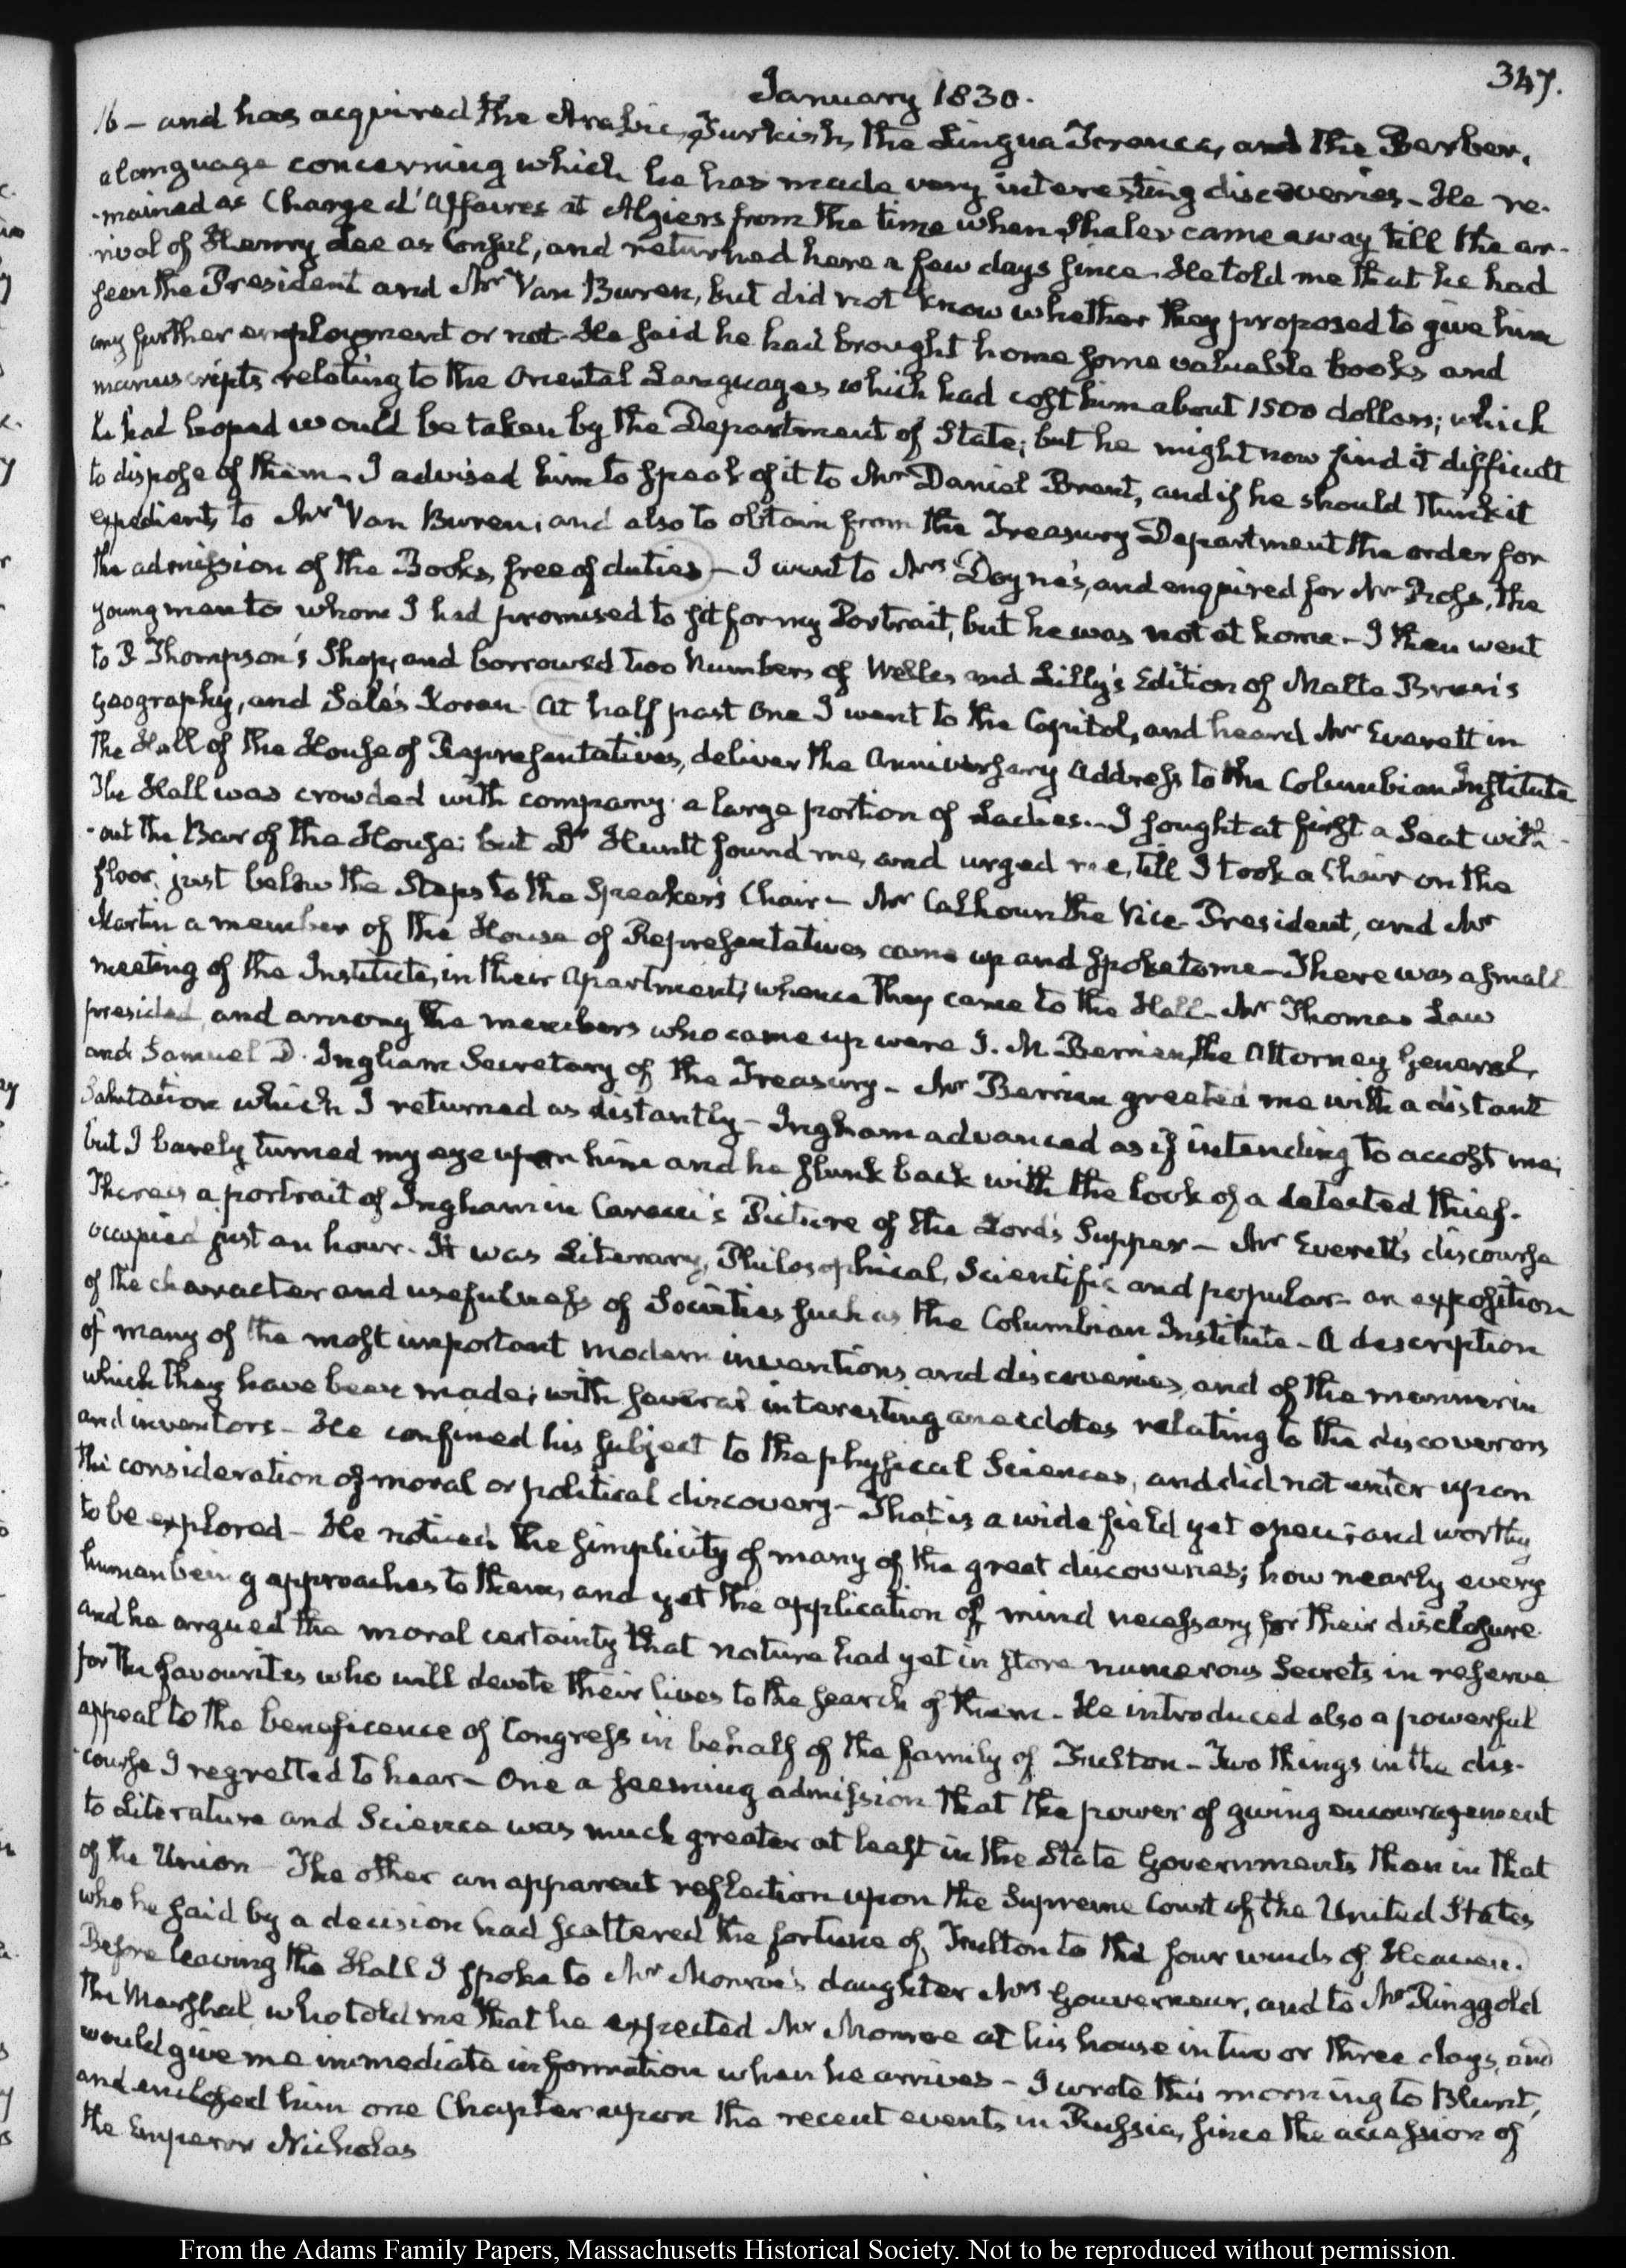 347.
January 1830.
16 – and has acquired the Arabic, Turkish, the Lingua Franca, and the Berber,
a language concerning which he has made very interesting discoveries – He re-
-mained as Chargé d'Affaires at Algiers from the time when Shaler came away till the ar-
-rival of Henry Lee as Consul, and returned here a few days since. He told me that he had
seen the President and Mr Van Buren, but did not know whether they proposed to give him
any further employment or not. He said he had brought home some valuable books and
manuscripts relating to the Oriental Languages which had cost him about 1500 dollars; which
he had hoped would be taken by the Department of State; but he might now find it difficult
to dispose of them – I advised him to speak of it to Mr Daniel Brent, and if he should think it
expedient, to Mr Van Buren; and also to obtain from the Treasury Department the order for
the admission of the Books, free of duties – I went to Mrs Doyne's, and enquired for Mr , the
young man to whom I had promised to sit for my Portrait, but he was not at home – I then went
to P. Thompson's Shop, and borrowed two Numbers of Wells and Lilly's Edition of Malte Brun's
geography, and Sale's Koran. At half past One I went to the Capitol, and heard Mr Everett in
the Hall of the House of Representatives, deliver the Anniversary Address to the Columbian Institute
The Hall was crowded with company; a large portion of Ladies. – I sought at first a Seat with-
-out the Bar of the House; but Dr Huntt found me, and urged me, till I took a Chair on the
floor, just below the Steps to the Speaker's Chair – Mr Calhoun the Vice-President, and Mr
Martin a member of the House of Representatives came up and spoke to me – There was a small
meeting of the Institute, in their apartment; whence they came to the Hall – Mr Thomas Law
presided, and among the members who came up were J. M. Berrien, the Attorney General,
and Samuel D. Ingham Secretary of the Treasury – Mr Berrien greeted me with a distant
Salutation which I returned as distantly – Ingham advanced as if intending to accost me;
but I barely turned my eye upon him and he slunk back with the look of a detected thief.
There is a portrait of Ingham in Caracci's Picture of the Lord's Supper – Mr Everett's discourse
occupied just an hour. It was Literary, Philosophical, Scientific and popular – an exposition
of the character and usefulness of Societies such as the Columbian Institute – A description
of many of the most important modern inventions and discoveries, and of the manner in
which they have been made; with several interesting anecdotes relating to the discoverers
and inventors – He confined his subject to the physical Sciences, and did not enter upon
the consideration of moral or political discovery – That is a wide field yet open; and worthy
to be explored – He noticed the simplicity of many of the great discoveries; how nearly every
human being approaches to them, and yet the application of mind necessary for their disclosure.
and he argued the moral certainty that nature had yet in store numerous Secrets in reserve
for the favourites who will devote their lives to the search of them – He introduced also a powerful
appeal to the beneficence of Congress in behalf of the family of Fulton – Two things in the dis-
-course I regretted to hear – One a seeming admission that the power of giving encouragement
to Literature and Science was much greater at least in the State Governments than in that
of the Union – The other an apparent reflection upon the Supreme Court of the United States
who he said by a decision had scattered the fortune of Fulton to the four winds of Heaven.
Before leaving the Hall I spoke to Mr Monroe's daughter Mrs Gouverneur, and to Mr Ringgold
the Marshal, who told me that he expected Mr Monroe at his house in two or three days, and
would give me immediate information when he arrives – I wrote this morning to Blunt,
and enclosed him one Chapter upon the recent events in Russia, since the accession of
the Emperor Nicholas
From the Adams Family Papers, Massachusetts Historical Society. Not to be reproduced without permission.